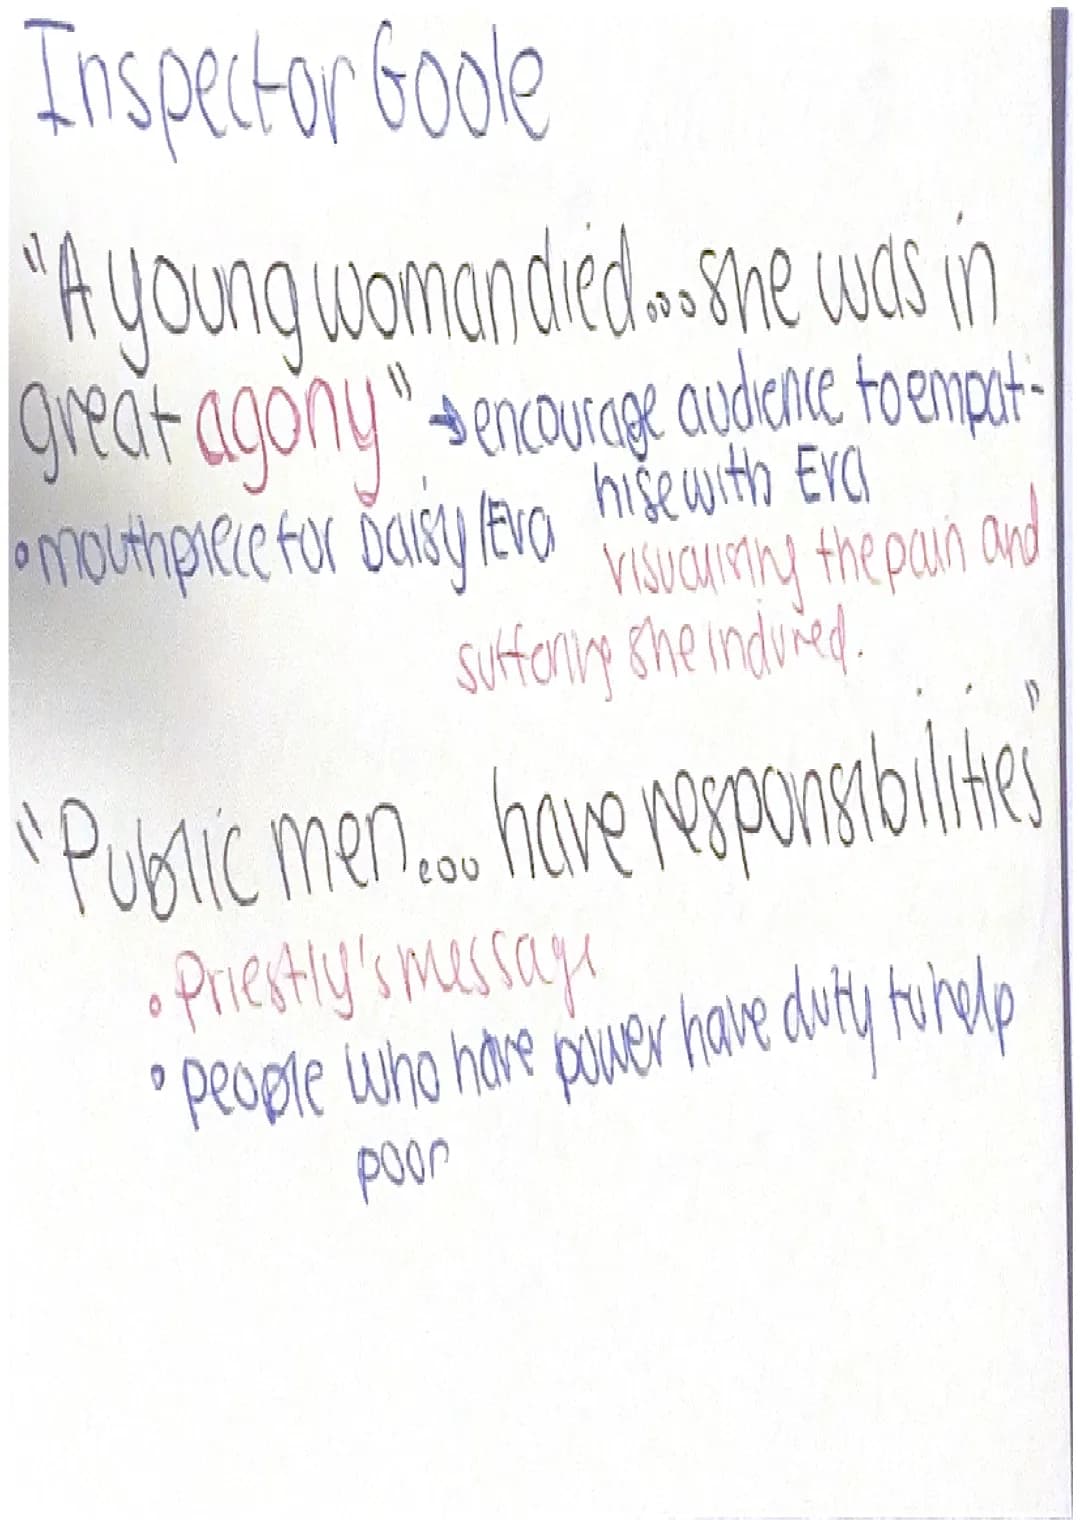 Inspector Goole
"A young woman died...she was in
great agony" → encourage audience to empat-
hise with Eva
• mouthpiece for Daisy/Eva
visualising the pain and
suffering she indured.
"Public men.... have responsibilities"
• Priestly's message
• people who have power have duty to help
poor